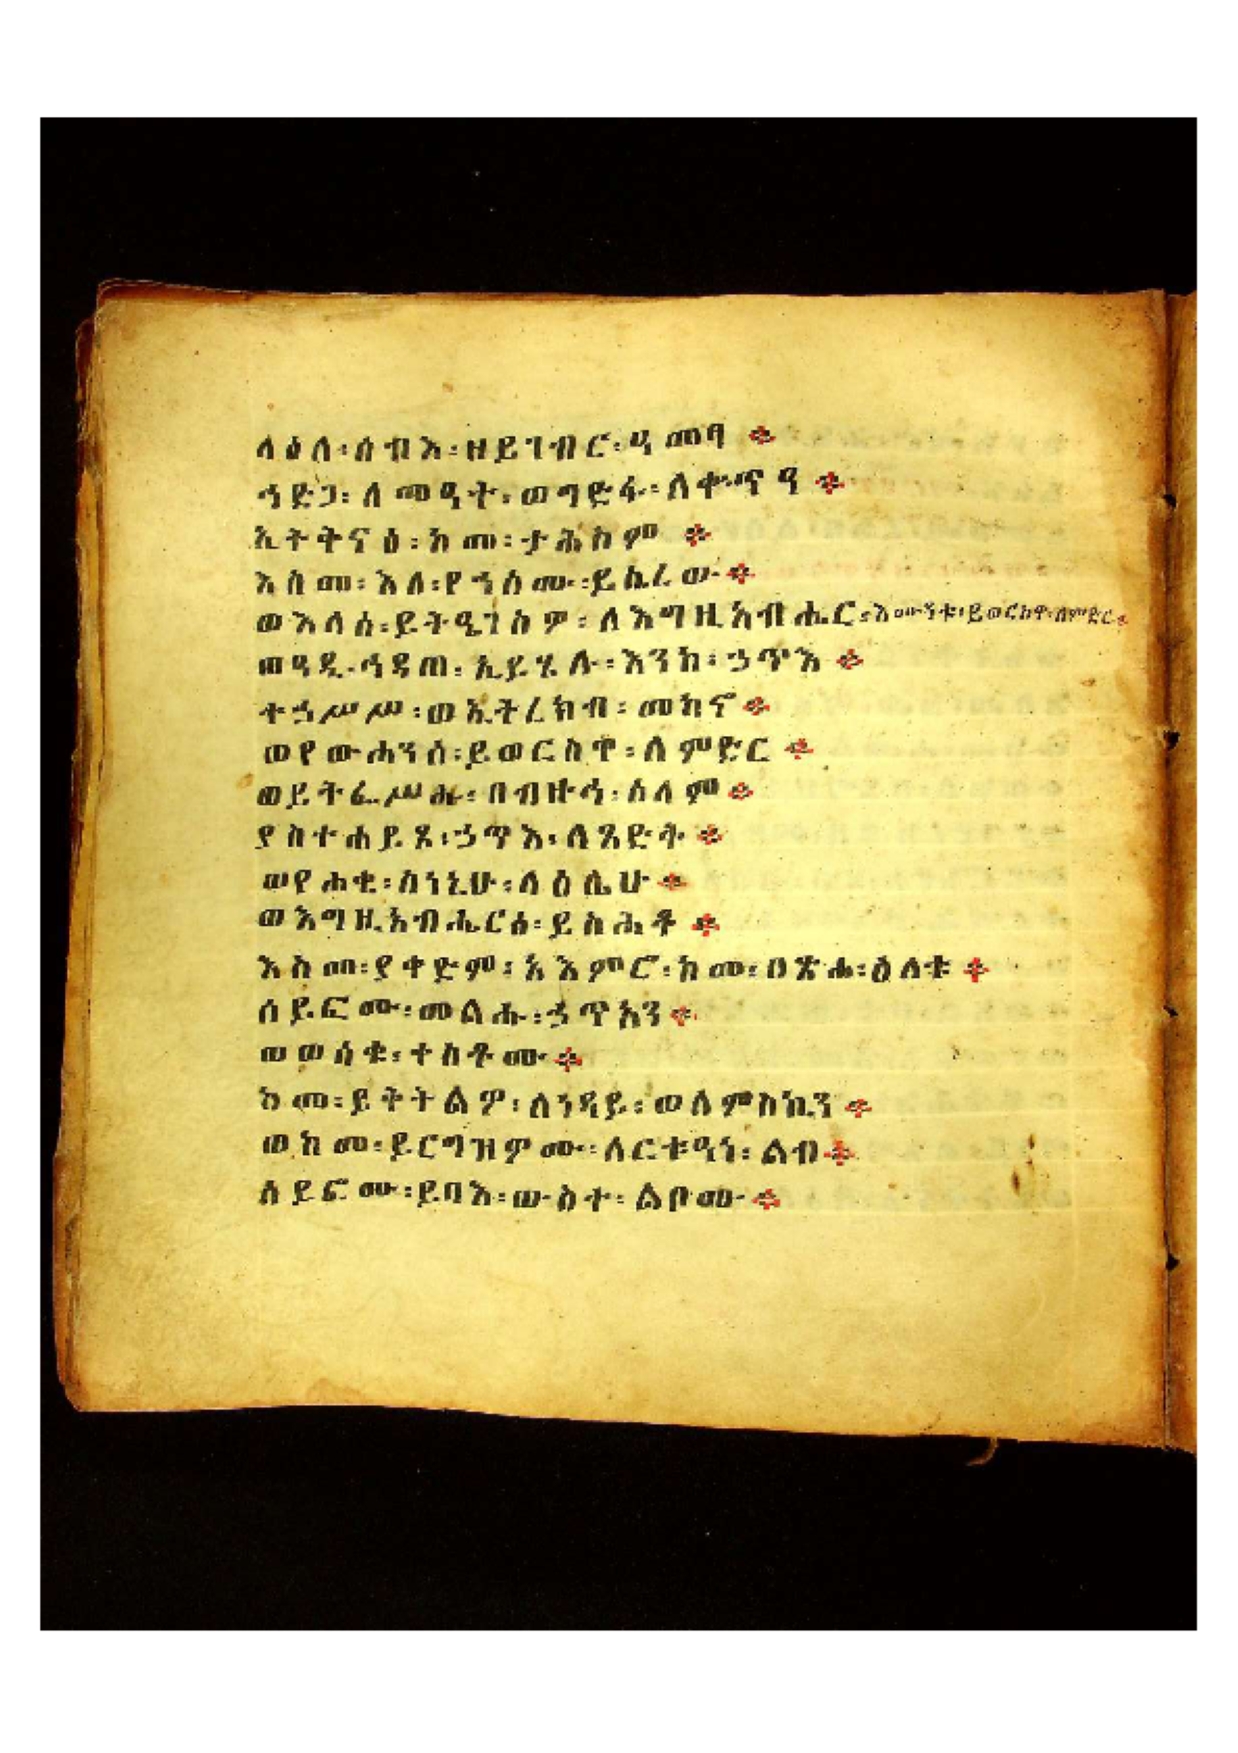 ላዕለ፡ሰብእ፡ዘይገብር፡ዓመፃ ።
ኅድጋ፡ለመዓት፡ወግድፋ፡ለቍጥዓ ።
ኢትቅናዕ፡ከመ፡ታሕስም ።
እስመ፡እለ፡የኀስሙ፡ይሤረው ።
ወእለሰ፡ይትዔገስዎ፡ለእግዚአብሔር፡እሙንቱ፡ይወርስዋ፡ለምድር ።
ወዓዲ፡ኅዳጠ፡ኢይሄሉ፡እንከ፡ኃጥእ ።
ተኃሥሥ፡ወኢትረክብ፡መካኖ ።
ወየውሐንሰ፡ይወርስዋ፡ለምድር ።
ወይትፌሥሑ፡በብዙኅ፡ሰላም ።
ያስተሐይጾ፡ኃጥእ፡ለጻድቅ ።
ወየሐቂ፡ስነኒሁ፡ላዕሌሁ ።
ወእግዚአብሔርሰ፡ይስሕቆ ።
እስመ፡ያቀድም፡አእምሮ፡ከመ፡በጽሐ፡ዕለቱ ።
ሰይፎሙ፡መልሑ፡ኃጥአን ።
ወወሰቁ፡ቀስቶሙ ።
ከመ፡ይቅትልዎ፡ለነዳይ፡ወለምስኪን ።
ወከመ፡ይርግዝዎሙ፡ለርቱዓነ፡ልብ ።
ሰይፎሙ፡ይባእ፡ውስተ፡ልቦሙ ።